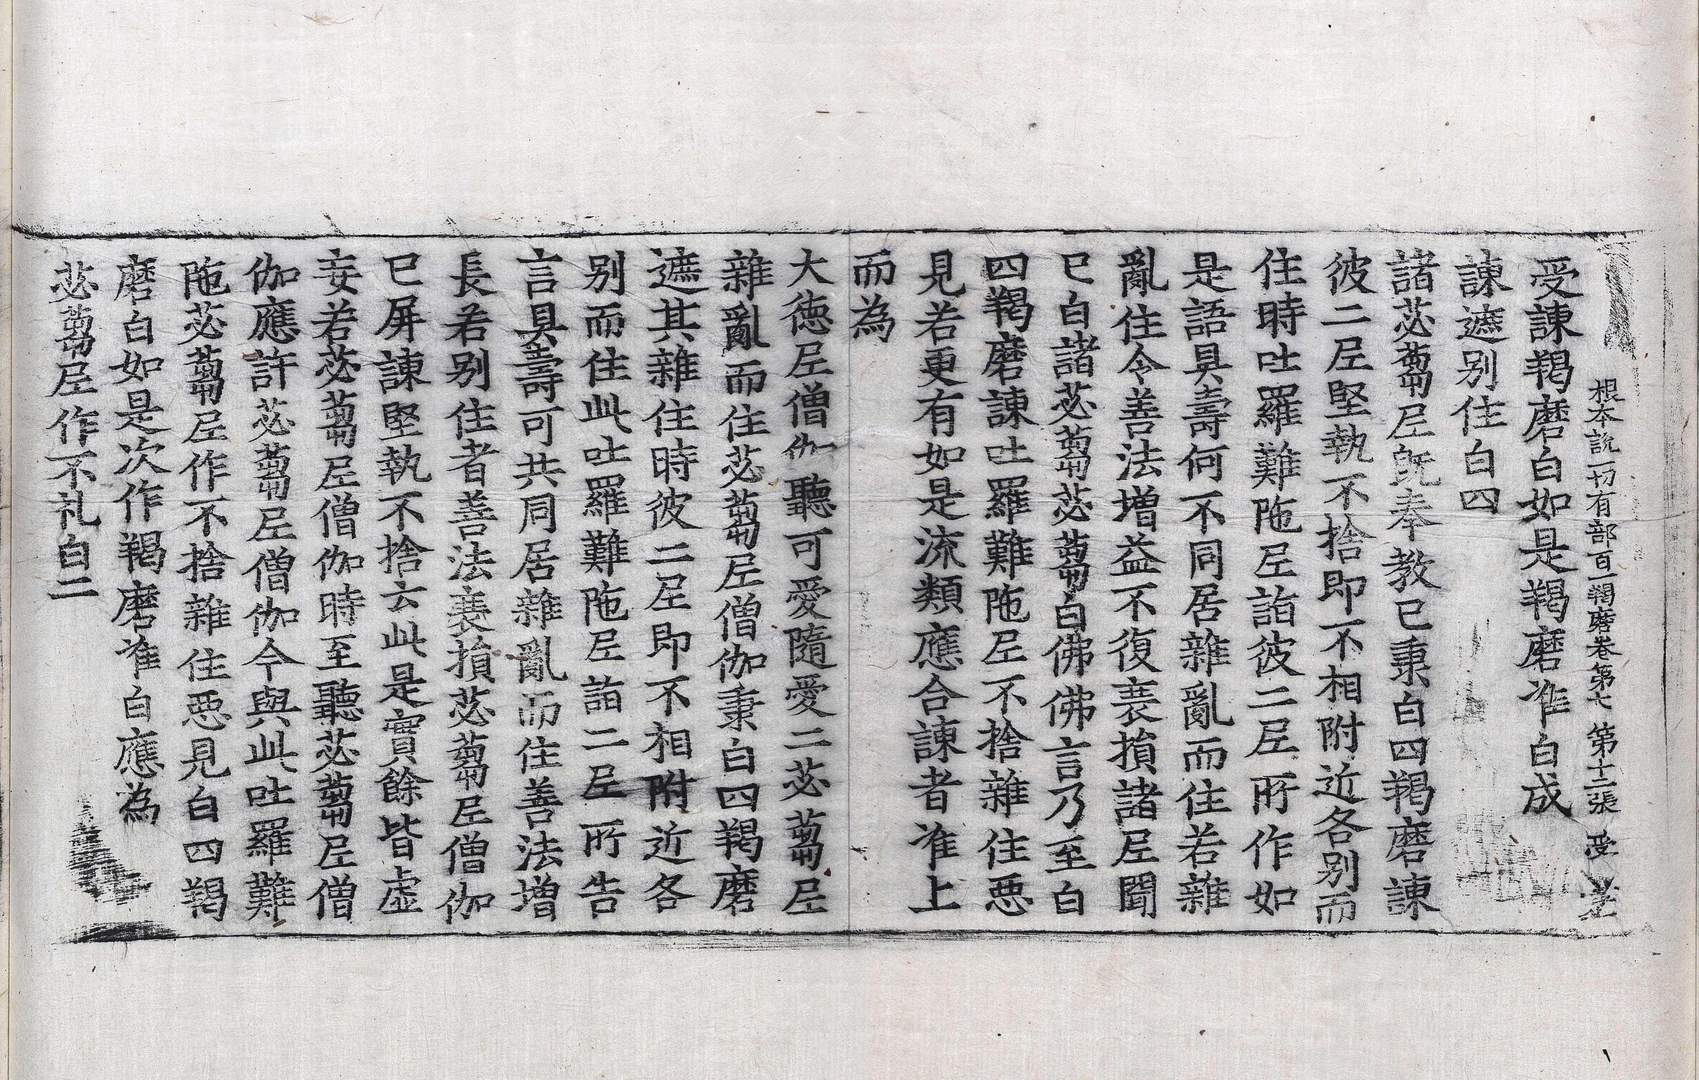 根本說一切有部百一羯磨卷第七 第十二張 受
受諫羯磨白如是羯磨准白成
諫遮别住白四
諸苾蒭尼旣奉教已秉白四羯磨諫
彼二尼堅執不捨即不相附近各别而
住時吐羅難陁尼詣彼二尼所作如
是語具壽何不同居雜亂而住若雜
亂住令善法增益不復衰損諸尼聞
已白諸苾蒭苾蒭白佛佛言乃至白
四羯磨諫吐羅難陁尼不捨雜住惡
見若更有如是流類應合諫者准上
而為
大德尼僧伽聽可愛隨愛二苾蒭尼
雜亂而住苾蒭尼僧伽秉白四羯磨
遮其雜住時彼二尼即不相附近各
别而住此吐羅難陁尼詣二尼所告
言具壽可共同居雜亂而住善法增
長若别住者善法衰損苾蒭尼僧伽
已屏諫堅執不捨云此是實餘皆虛
妄若苾蒭尼僧伽時至聽苾蒭尼僧
伽應許苾蒭尼僧伽今與此吐羅難
陁苾蒭尼作不捨雜住惡見白四羯
磨白如是次作羯磨准白應為
苾蒭尼作不礼白二